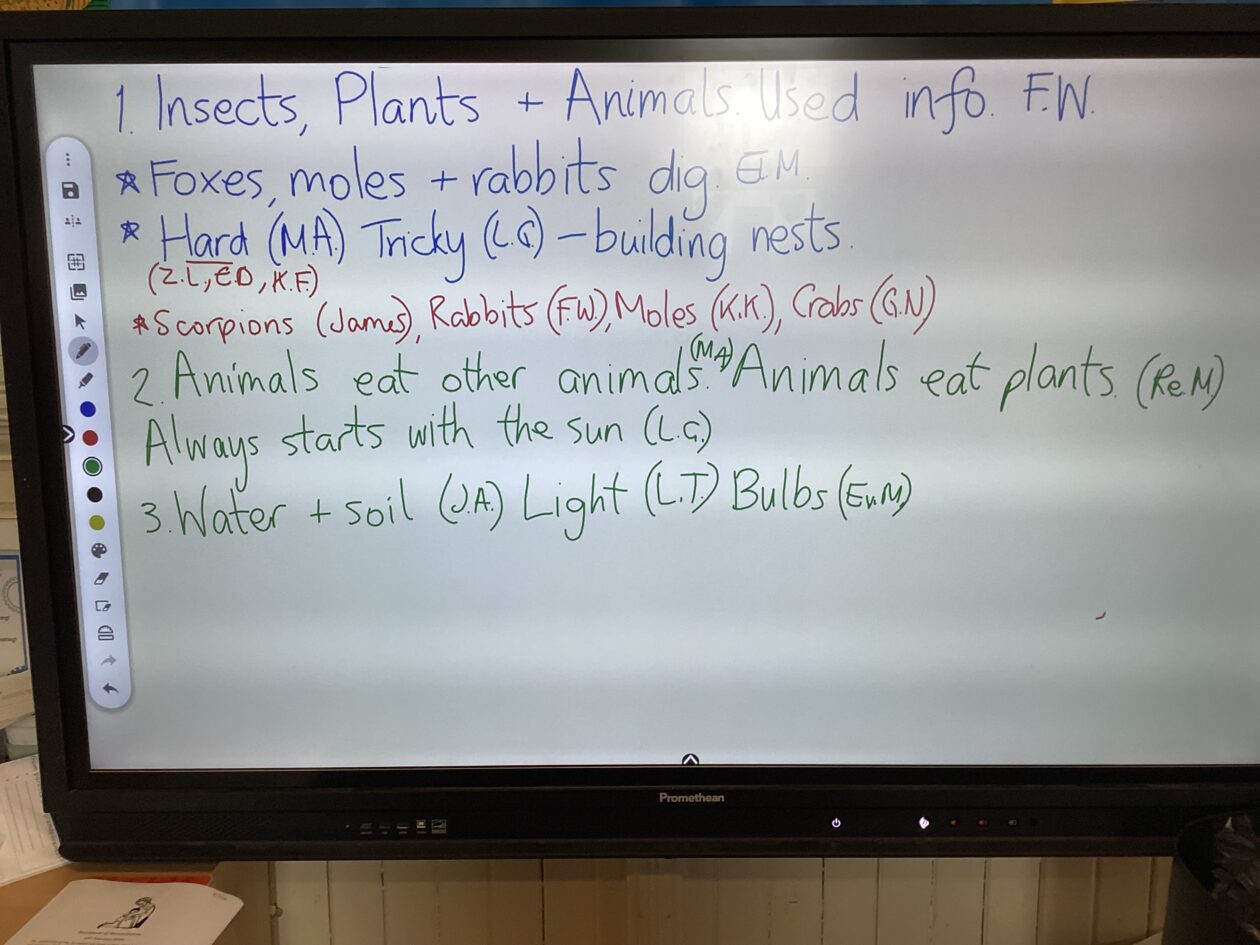 1. Insects, Plants + Animals. Used info. F.W.
*Foxes, moles + rabbits dig. E.M.
* Hard (M.A.) Tricky (L.G.) – building nests.
(Z.L, E.D, K.F.)
*Scorpions (James), Rabbits (F.W.), Moles (K.K.), Crabs (G.N)
2. Animals eat other animals. (MA) Animals eat plants. (Re.M)
Always starts with the sun (L.G.)
3. Water + soil (J.A.) Light (L.T.) Bulbs (Ev.M)
Promethean